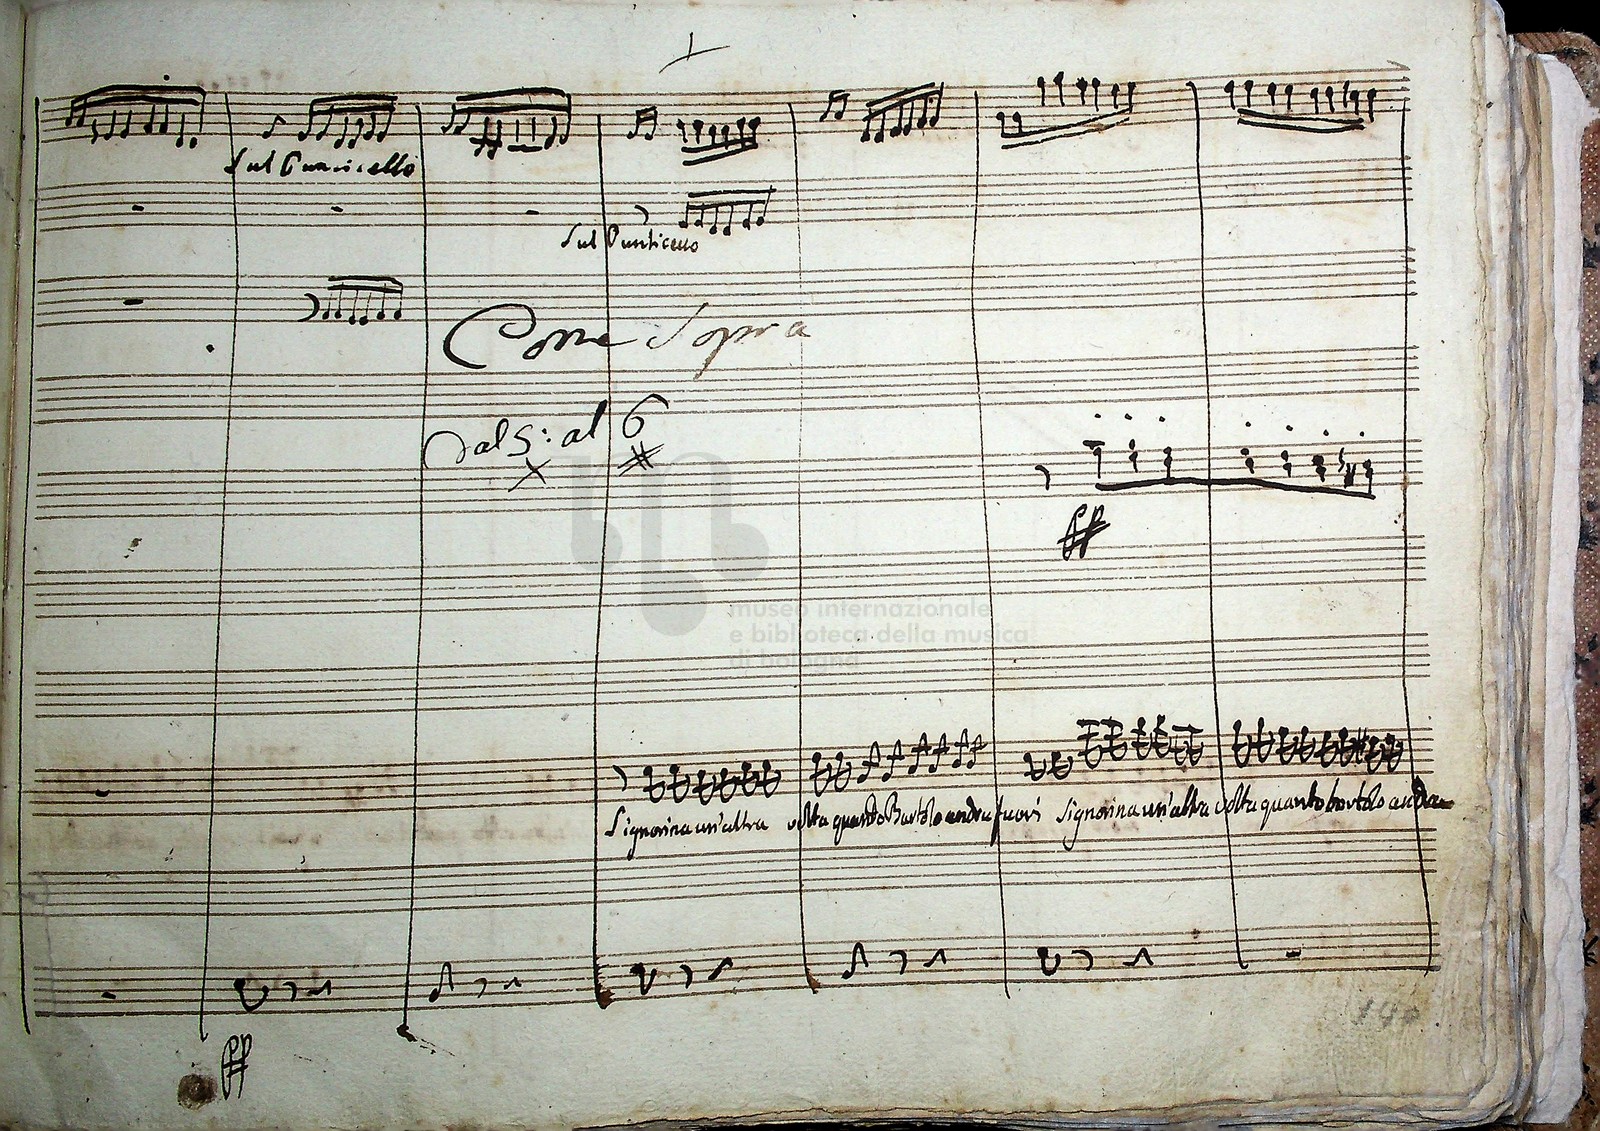 Sul Ponticello
Sul Ponticello
Come Sopra
Dal 5: al 6
museo internazionale
e biblioteca della musica
di bologna
Signorina un'altra volta quanto Bartolo andra fuori Signorina un'altra volta quanto bortolo andra
pp
pp